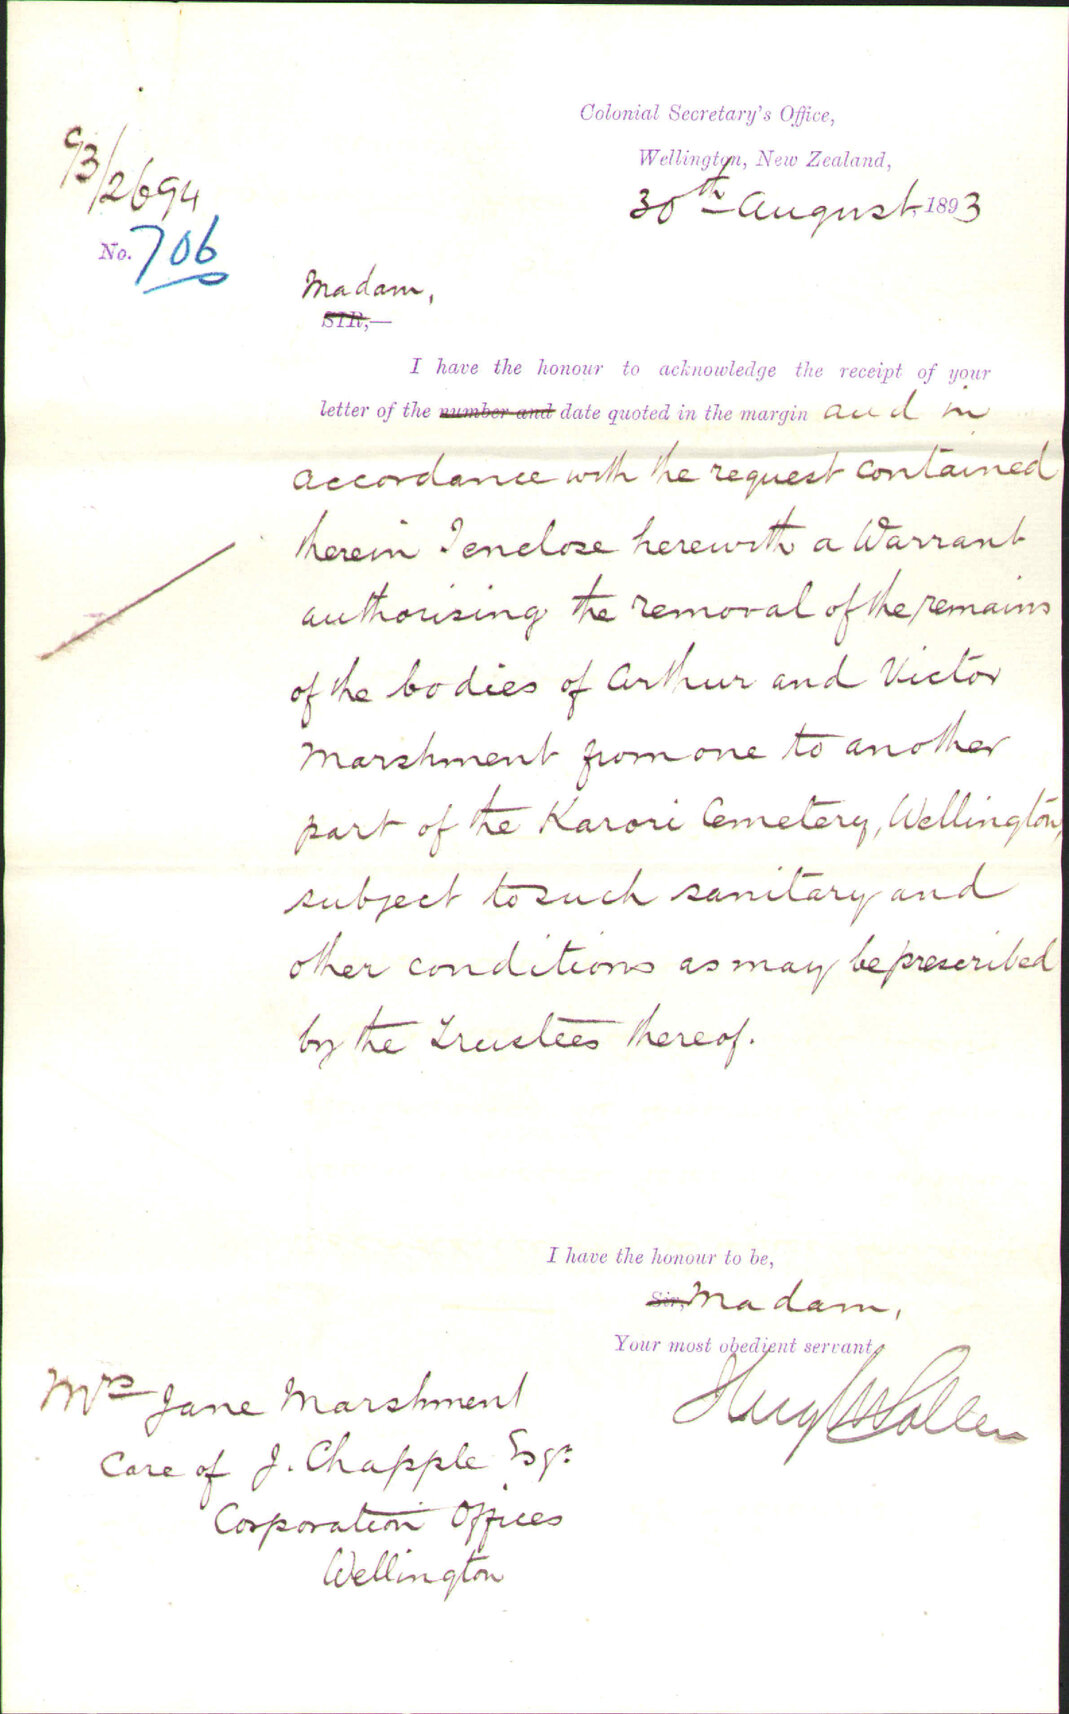 Colonial Secretary's Office,
Wellington, New Zealand,
30th August, 1893
93/2694
No. 706
Madam,
SIR,—
I have the honour to acknowledge the receipt of your
letter of the number and date quoted in the margin and in
accordance with the request contained
therein I enclose herewith a Warrant
authorising the removal of the remains
of the bodies of Arthur and Victor
Marshment from one to another
part of the Karori Cemetery, Wellington,
subject to such sanitary and
other conditions as may be prescribed
by the Trustees thereof.
I have the honour to be,
Sir, Madam,
Your most obedient servant,
Hugh Pollen
Mrs Jane Marshment
Care of J. Chapple Esqr.
Corporation Offices
Wellington